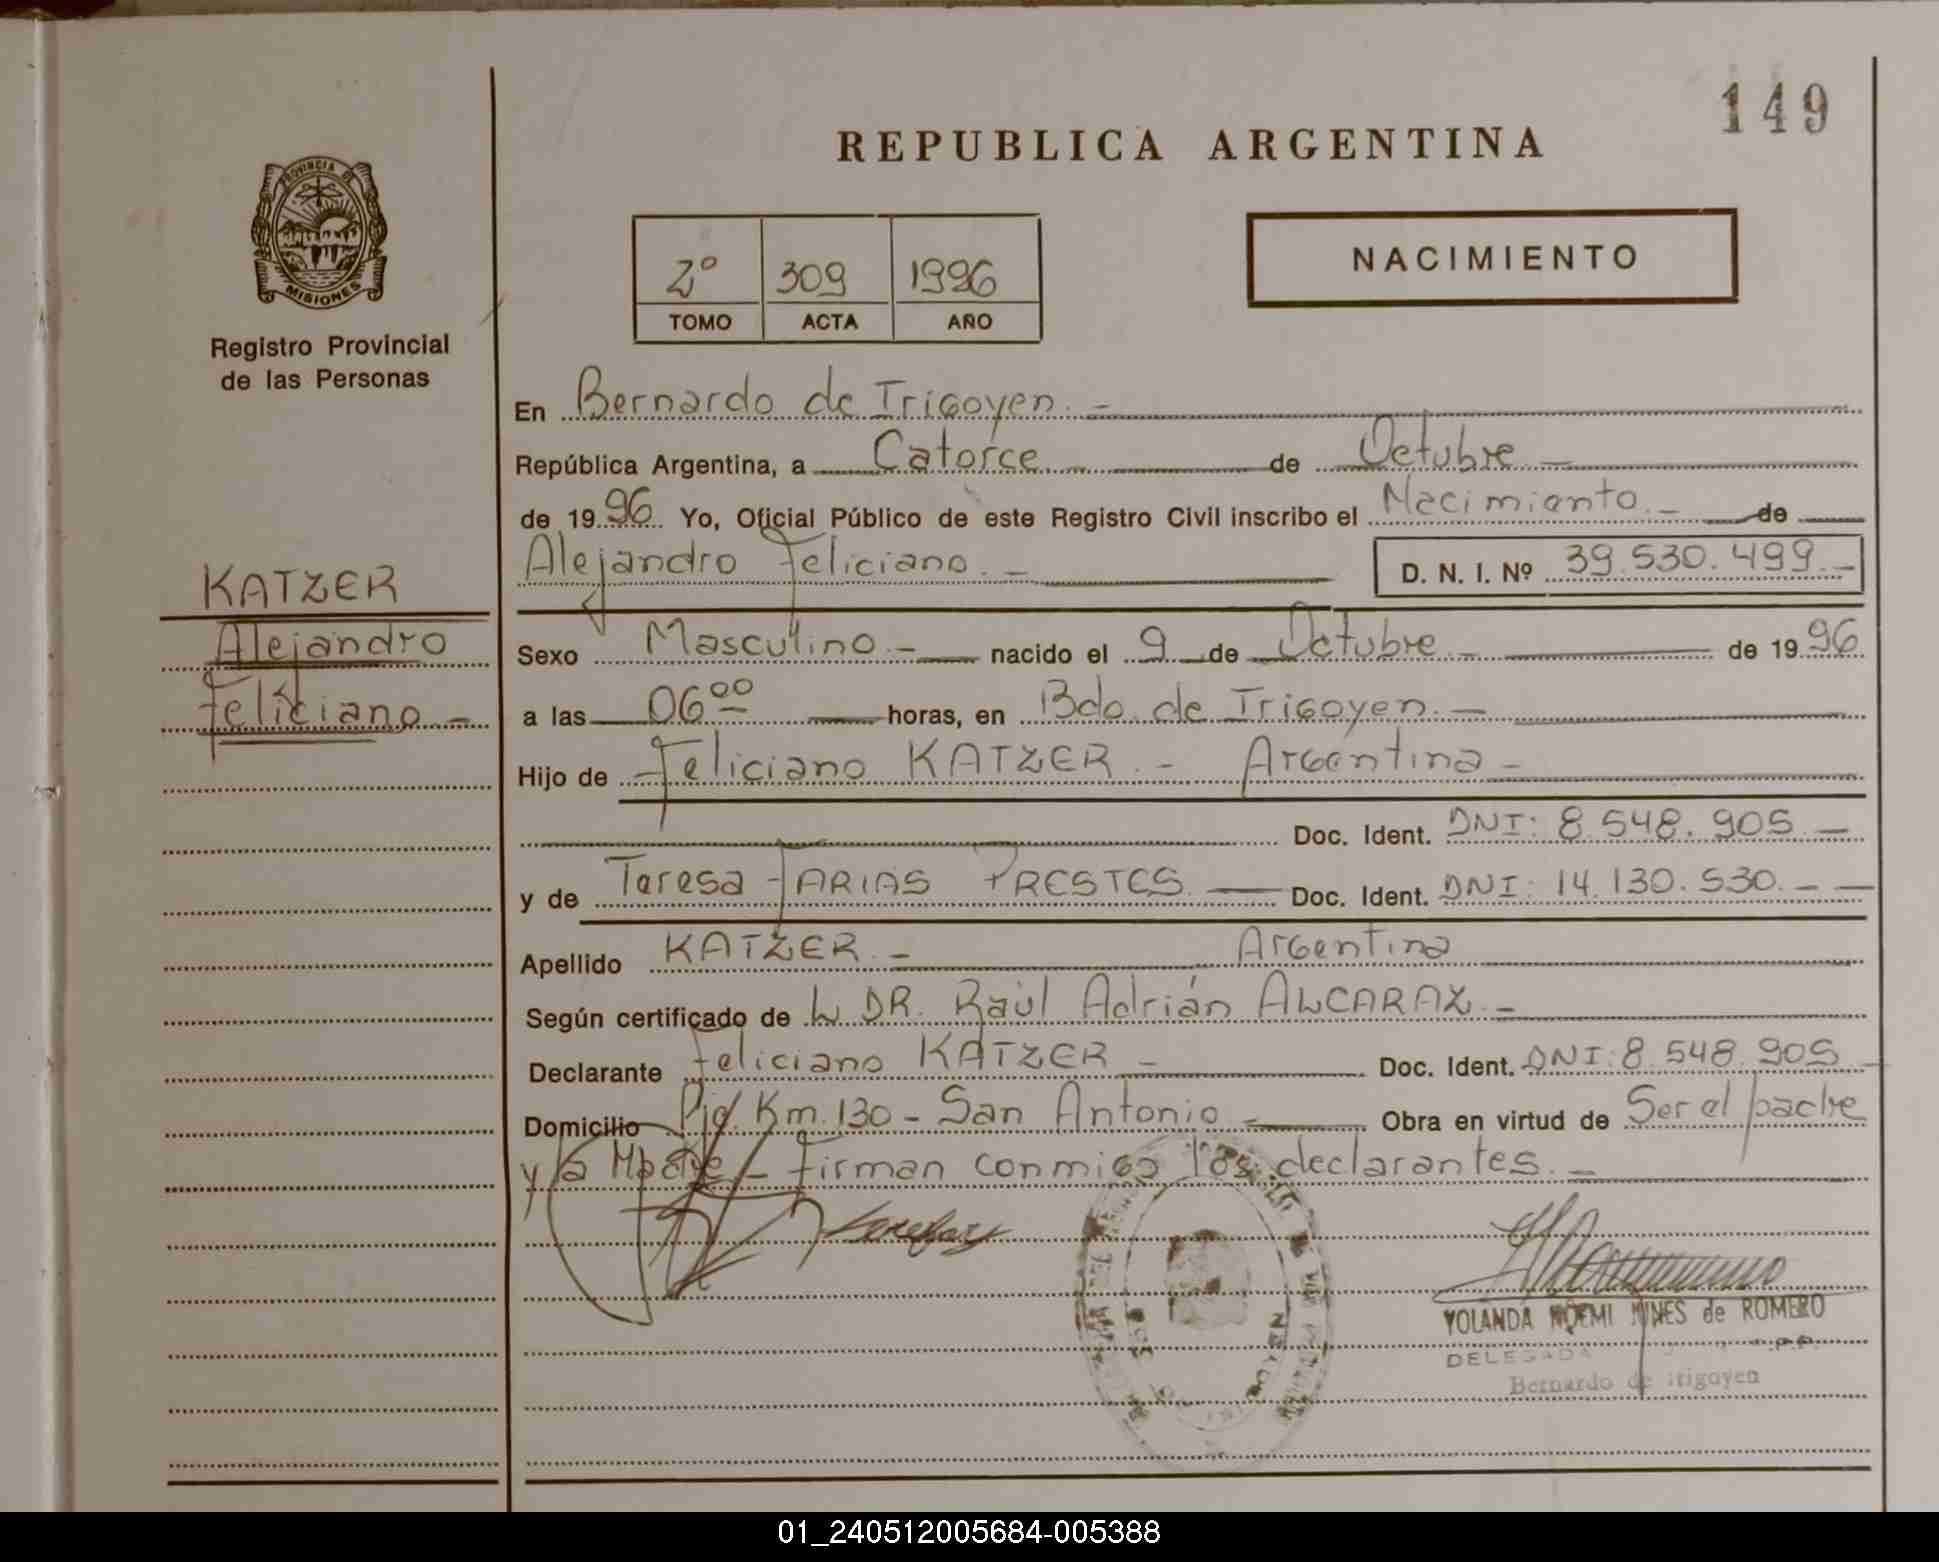 149
REPUBLICA ARGENTINA
PROVINCIA DE
MISIONES
Registro Provincial
de las Personas
2º 309 1996
TOMO ACTA AÑO
NACIMIENTO
En Bernardo de Irigoyen. -
República Argentina, a Catorce de Octubre -
de 1996 Yo, Oficial Público de este Registro Civil inscribo el Nacimiento. - de
Alejandro Feliciano. - D. N. I. Nº 39.530.499. -
KATZER
Alejandro
Feliciano -
Sexo Masculino. - nacido el 9 de Octubre - de 1996
a las 06⁰⁰ horas, en Bdo. de Irigoyen. -
Hijo de Feliciano KATZER. - Argentina -
Doc. Ident. DNI: 8.548.905 -
y de Teresa FARIAS PRESTES. Doc. Ident. DNI: 14.130.530. -
Apellido KATZER. - Argentina
Según certificado de DR. Raúl Adrián ALCARAZ. -
Declarante Feliciano KATZER - Doc. Ident. DNI: 8.548.905
Domicilio Pje. Km. 130 - San Antonio - Obra en virtud de Ser el padre
y la Madre - Firman conmigo los declarantes. -
YOLANDA NOEMI MINES de ROMERO
DELEGADA
Bernardo de Irigoyen
01_240512005684-005388